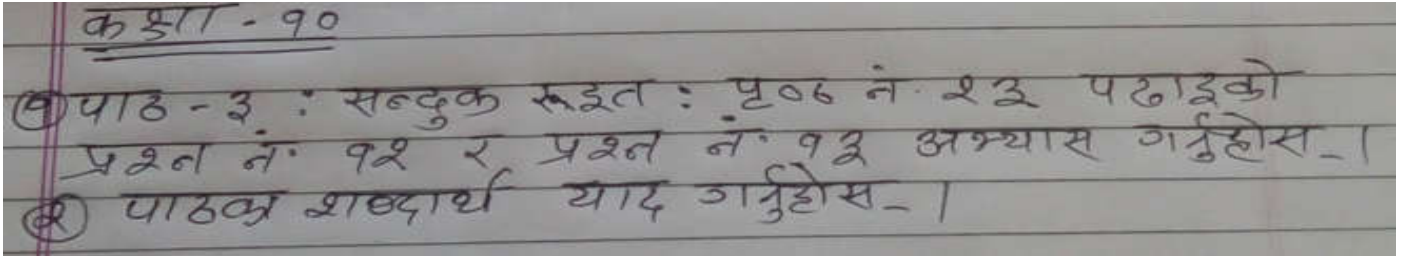 कक्षा - १०
१ पाठ - ३ : सन्दुक रूइत : पृष्ठ नं. २३ पढाइको
प्रश्न नं. १२ र प्रश्न नं. १३ अभ्यास गर्नुहोस् ।
२ पाठका शब्दार्थ याद गर्नुहोस् ।